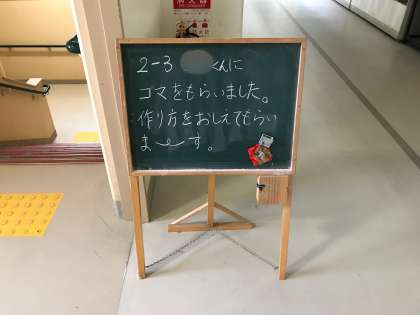 2-3 くんに
コマをもらいました。
作り方をおしえてもらい
ま〜す。